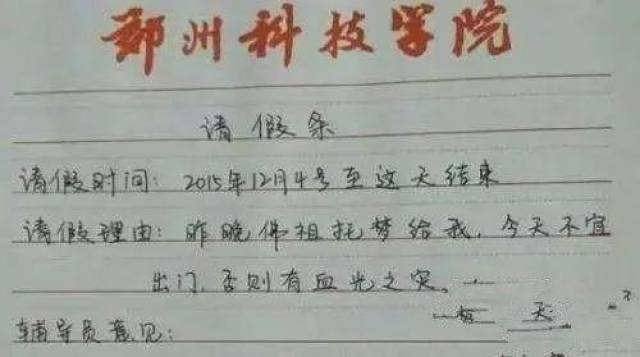 郑州科技学院
请假条
请假时间：2015年12月4号至这天结束
请假理由：昨晚佛祖托梦给我，今天不宜
出门，否则有血光之灾。
辅导员意见：